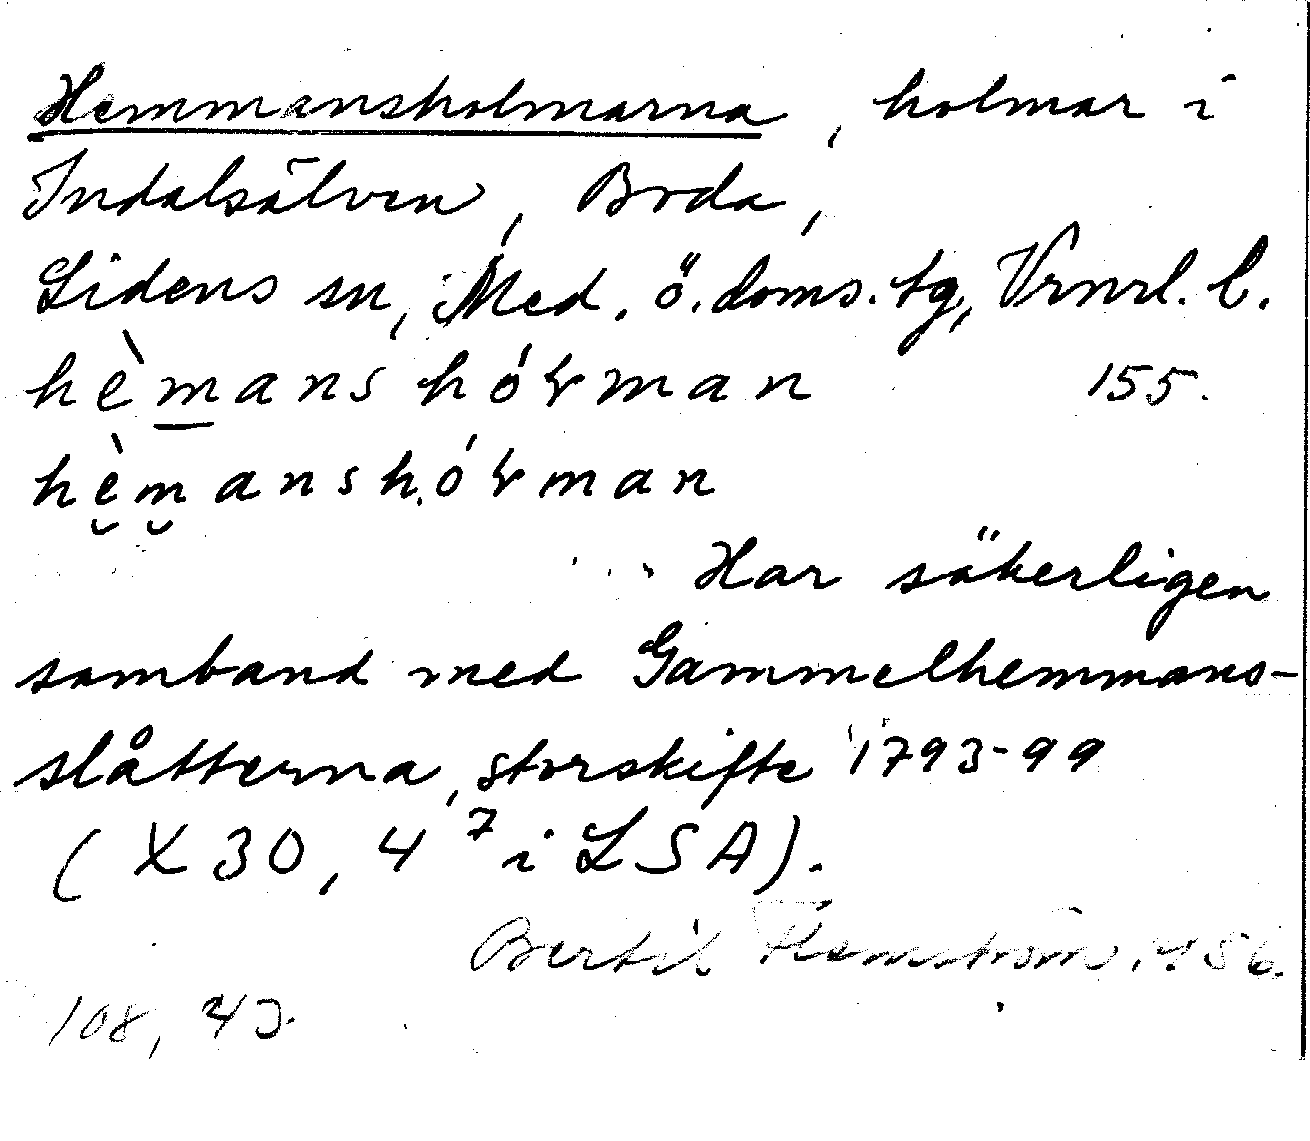 Hemmansholmarna, holmar i
Indalsälven, Boda,
Lidens sn, Med. ö. doms. tg, Vrnrl. l.
hèmanshóɽman 155.
hèmanshóɽman
Har säkerligen
samband med Gammelhemmans-
slåtterna, storskifte 1793-99
(X30, 4⁷ i LSA).
Bertil Flemström 1956.
108,